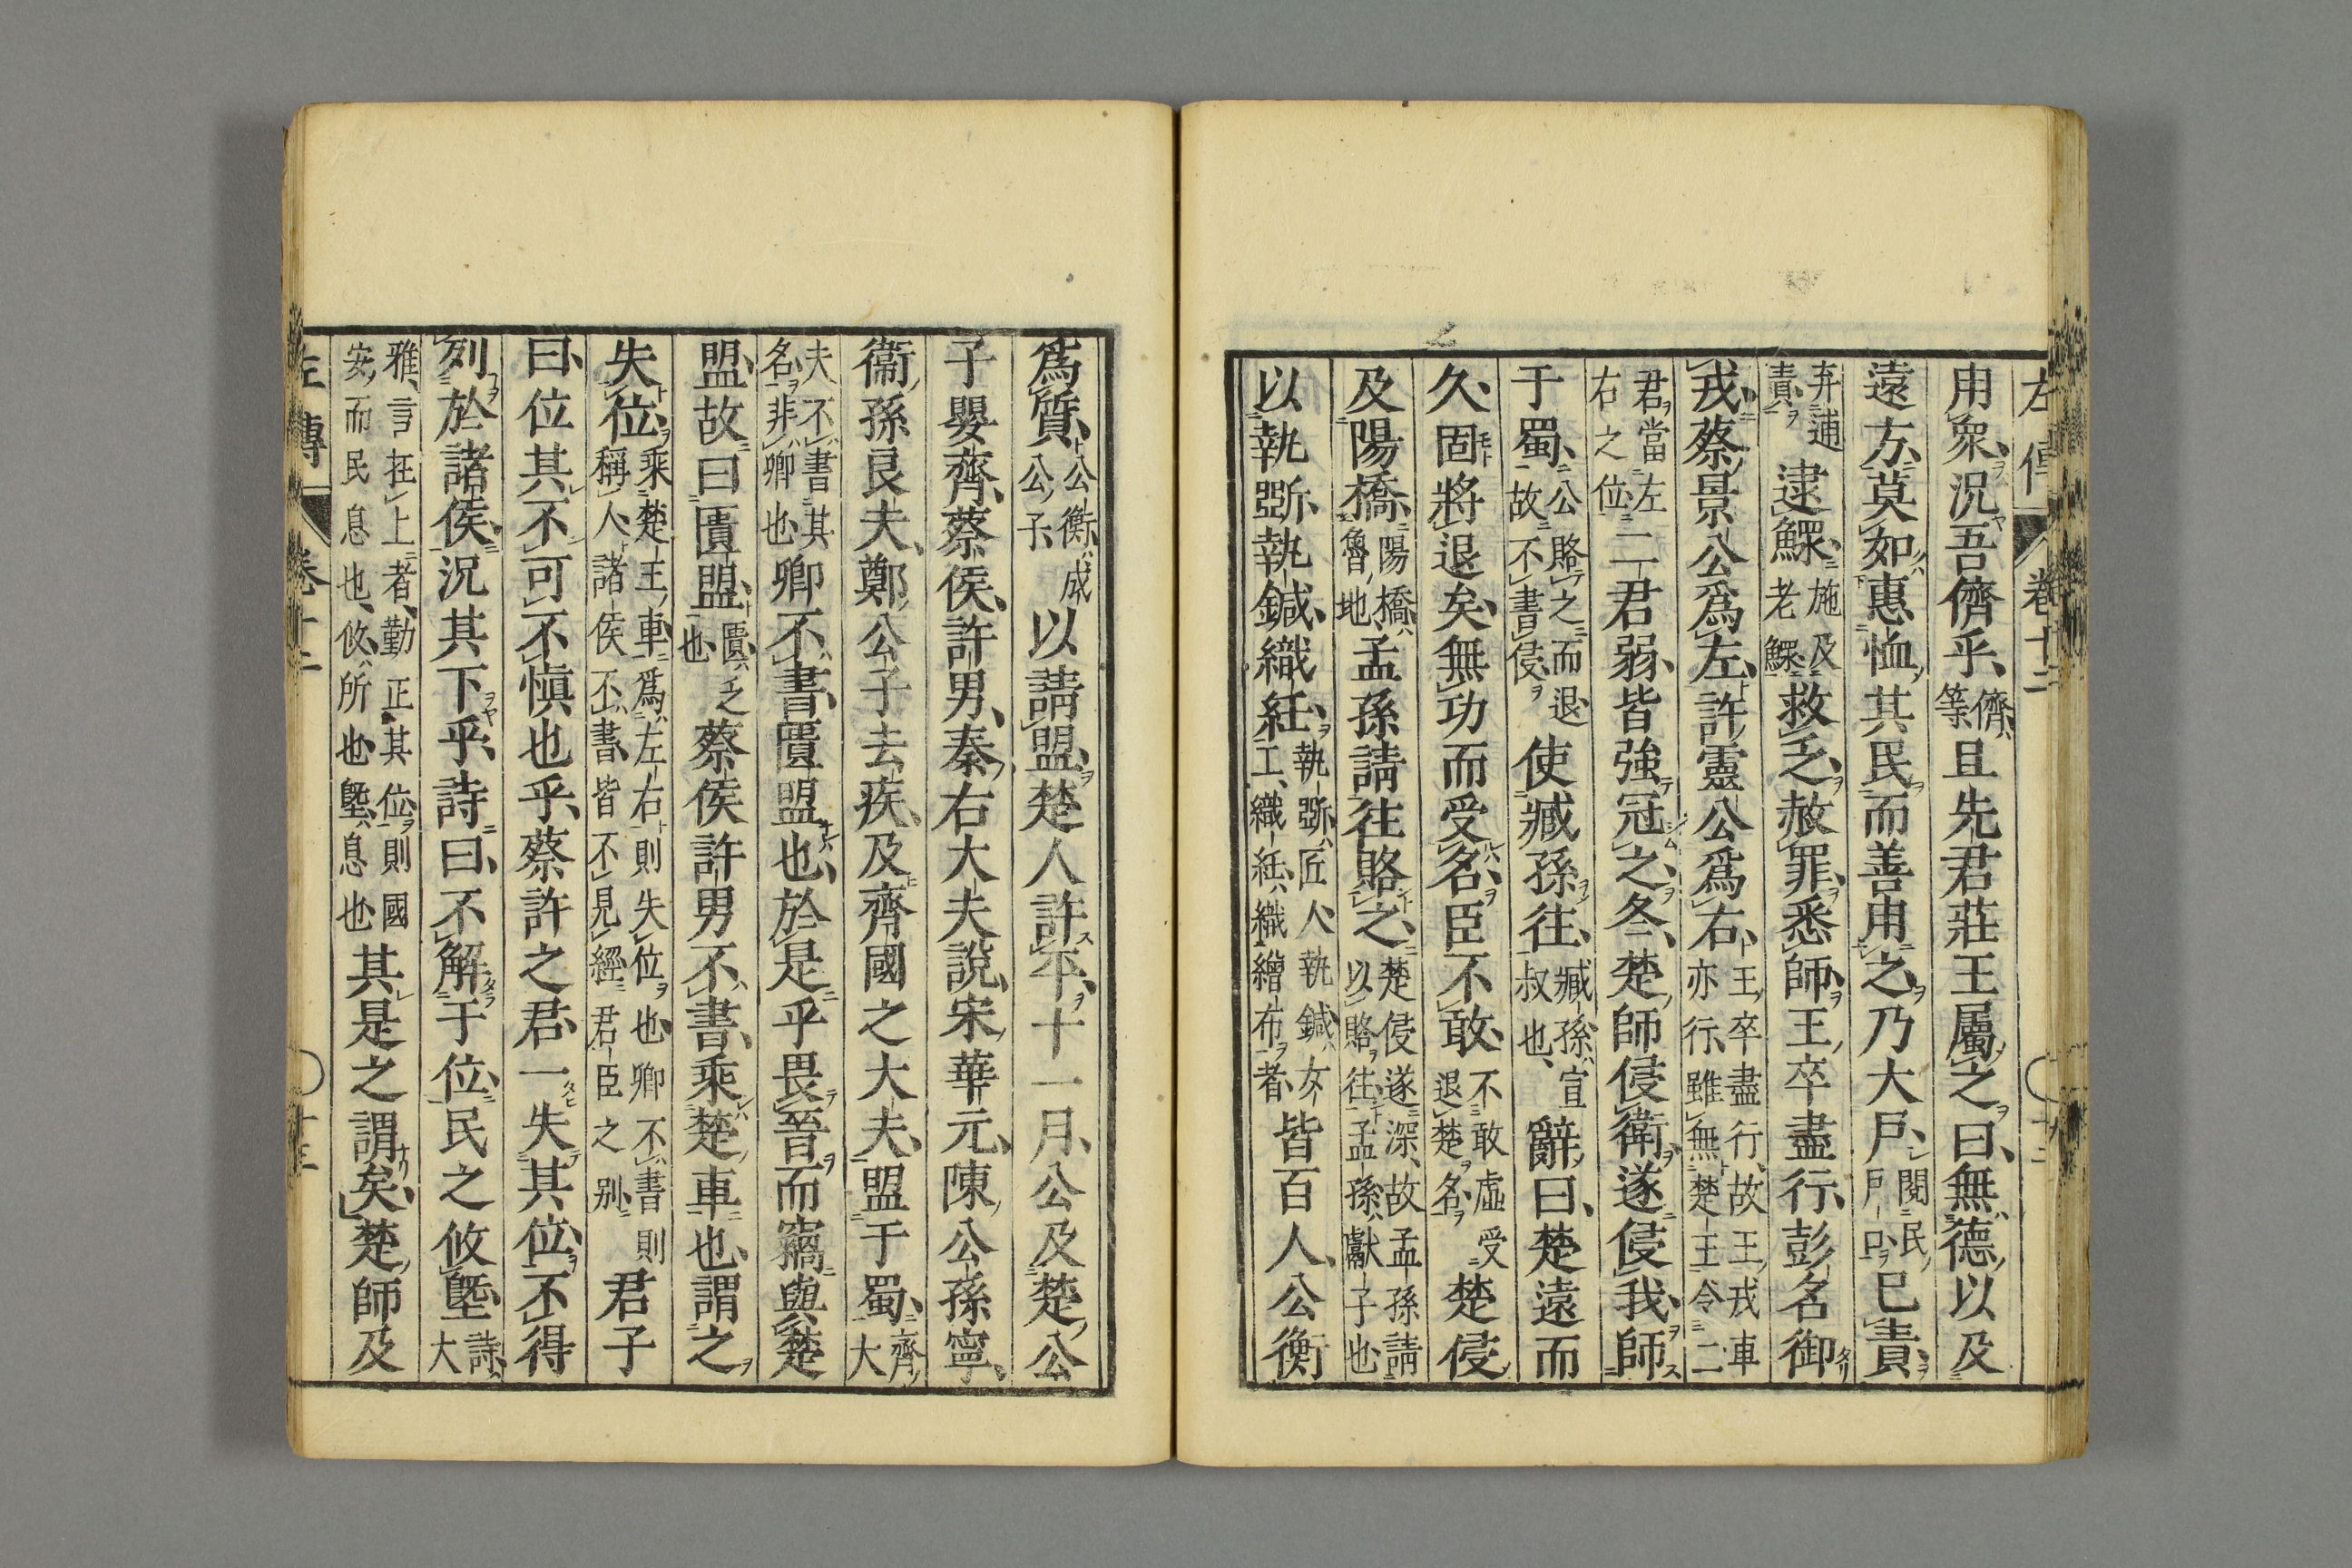 左傳 卷十二 十二
用衆況吾儕乎儕等且先君莊王屬之曰無德以及
遠方莫如惠恤其民而善用之乃大戶閱民戶口已責
弃逋責逮鰥施及老鰥救乏赦罪悉師王卒盡行彭名御
戎蔡景公爲左許靈公爲右王卒盡行故王戎車亦行雖無楚王令二
君當左右之位二君弱皆強冠之冬楚師侵衛遂侵我師
于蜀公賂之而退故不書侵使臧孫往臧孫宣叔也辭曰楚遠而
久固將退矣無功而受名臣不敢不敢虛受退楚名楚侵
及陽橋陽橋魯地孟孫請往賂之楚侵遂深故孟孫請以賂往孟孫獻子也
以執斲執鍼織紝執斲匠人執鍼女工織紝織繒布者皆百人公衡
爲質公衡成公子以請盟楚人許平十一月公及楚公
子嬰齊蔡侯許男秦右大夫說宋華元陳公孫寧
衞孫良夫鄭公子去疾及齊國之大夫盟于蜀齊大
夫不書其名非卿也卿不書匱盟也於是乎畏晉而竊與楚
盟故曰匱盟匱乏也蔡侯許男不書乘楚車也謂之
失位乘楚王車爲左右則失位也卿不書則稱人諸侯不書皆不見經君臣之別君子
曰位其不可不愼也乎蔡許之君一失其位不得
列於諸侯況其下乎詩曰不解于位民之攸墍詩大
雅言在上者勤正其位則國安而民息也攸所也墍息也其是之謂矣楚師及
左傳 卷十二 十三